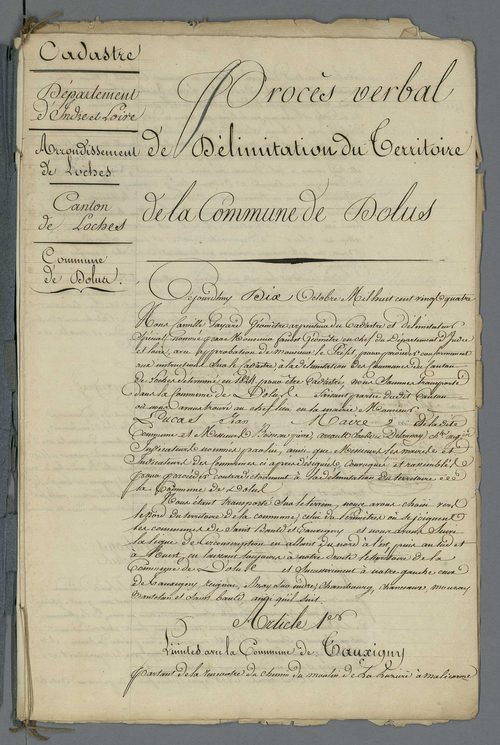 Cadastre
Département
d'Indre et Loire
Arrondissement
de Loches
Canton
de Loches
Commune
de Dolus.
Procès verbal
de Délimitation du Territoire
de la Commune de Dolus
Cejourdhuy Dix Octobre Mil huit cent vingt quatre
Nous Camille Géomètre du Cadastre et délimitateur
Spécial nommé par Monsieur Géomètre en chef du Département d'Indre
et Loire, avec approbation de monsieur le Préfet pour procéder conformément
aux instructions sur le Cadastre, à la délimitation des Communes du Canton
de Loches déterminé en 1824 pour être Cadastré, nous sommes transporté
dans la commune de Dolus faisant partie du dit Canton
où nous avons trouvé au chef lieu en la mairie Monsieur
Lucas Jean Maire de la dite
Commune et Messieurs
Indicateurs nommés par lui, ainsi que Messieurs les maires et
Indicateurs des Communes ci après désignés, convoqués et rassemblés
pour procéder contradictoirement à la délimitation du territoire
de la Commune de Dolus
Nous étant transportés sur le terrain, nous avons
le Nord du territoire de la commune, celui du Périmètre où se joignent
les communes de Saint Bauld et Tauxigny et nous avons Suivi
la ligne de Circonscription en allant du nord à l'est puis au sud et
à l'Ouest, en laissant toujours à notre droite le territoire de la
Commune de Dolus et Successivement à notre gauche ceux
de Tauxigny, reignac, Azay sur indre, Chambourg, chanceaux, mouzay
Manthelan et Saint bauld, ainsi qu'il suit
Article 1er
Limites avec la Commune de Tauxigny
Partant de la rencontre du chemin du moulin de à